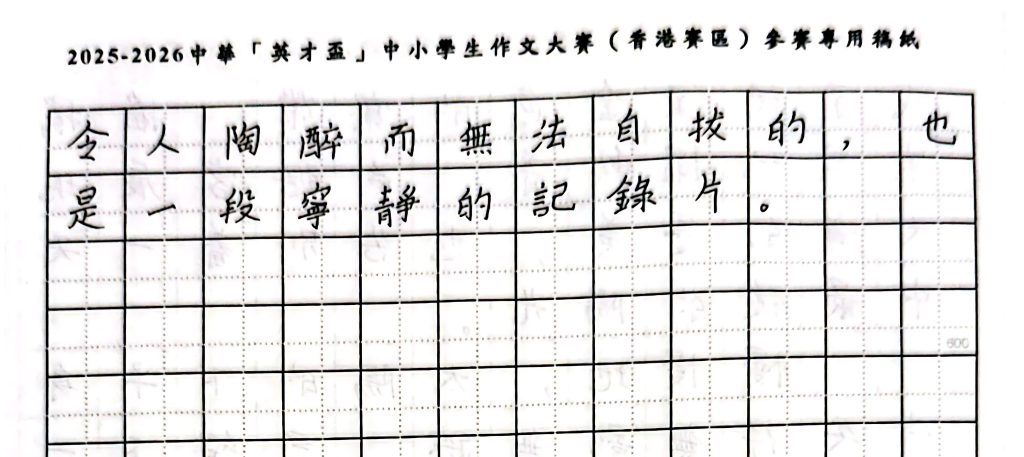 2025-2026中華「英才盃」中小學生作文大賽（香港賽區）參賽專用稿紙
令人陶醉而無法自拔的，也
是一段寧靜的記錄片。
600